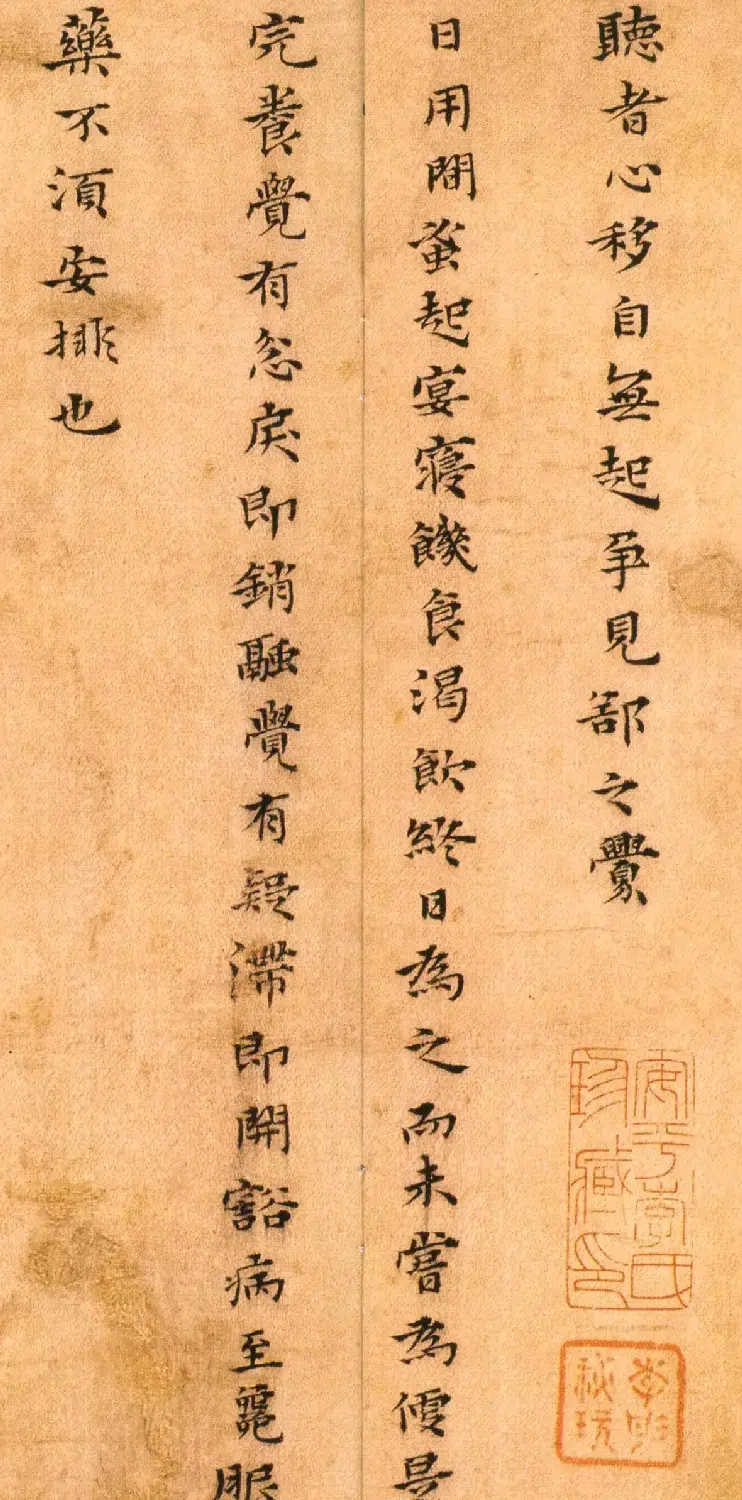 聽者心移自無起爭見郤之釁
日用間蚤起宴寢饑食渴飲終日為之而未嘗為便是
完養覺有忿戾即銷融覺有疑滯即開豁病至服
藥不須安排也
安平李氏
珍藏印
李
秘玩